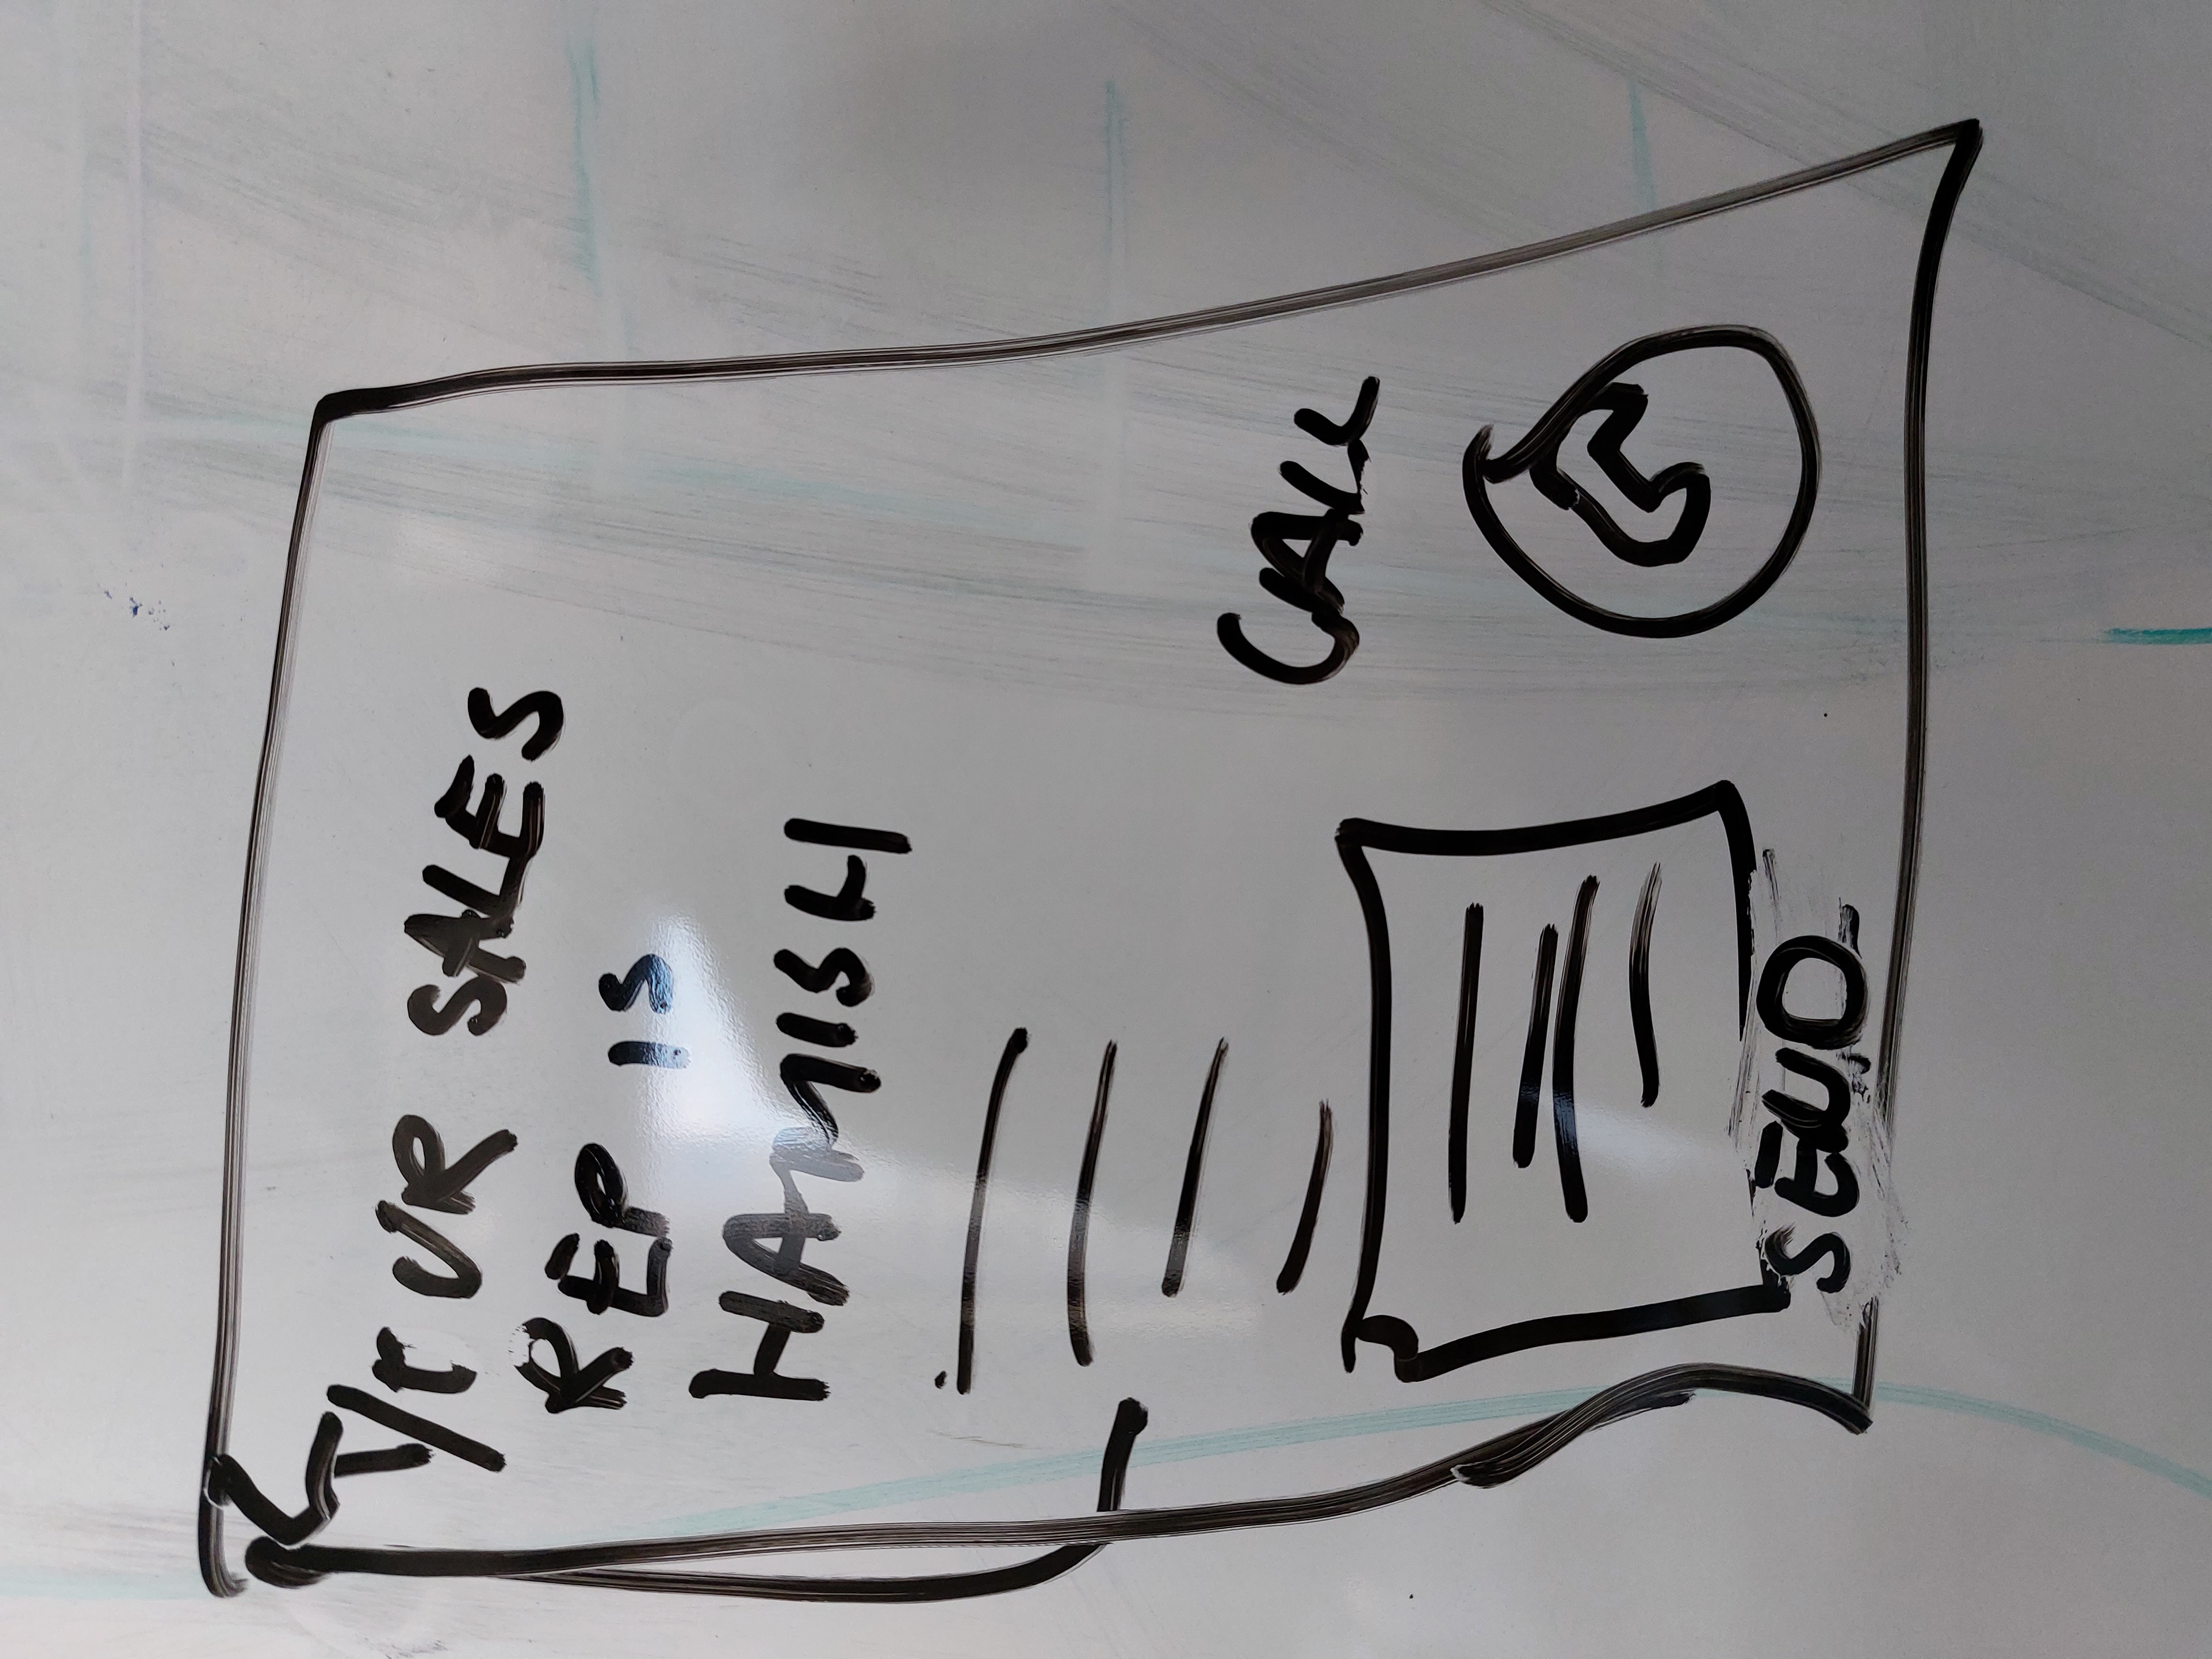 YOUR SALES
REP IS
HAMISH
CALL
SEND